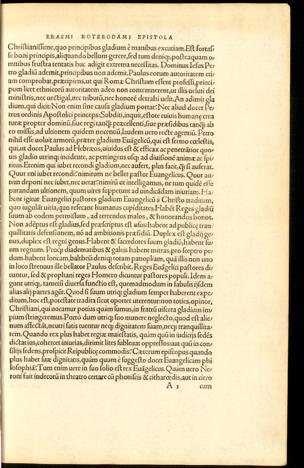 ERASMI ROTERODAMI EPISTOLA
Christianissime, quo principibus gladium è manibus excutiam. Est fortas-
se boni principis, aliquando bellum gerere, sed tum deniq; postquam o-
mnibus frustra tentatis huc adigit extrema necessitas. Dominus Iesus Pe-
tro gladiũ ademit, principibus non ademit. Paulus eorum autoritatem eti-
am comprobat, præcipiens, ut qui Romæ Christum essent professi, princi-
pum licet ethnicorũ autoritatem adeo non contemnerent, ut illis uti dei
ministris, nec uectigal, nec tributũ, nec honorẽ detrahi uelit. An adimit gla
dium, qui dicit: Non enim sine causa gladium portat? Nec aliud docet Pe
trus ordinis Apostolici princeps. Subditi, inquit, estote cuiuis humanę crea
turæ propter dominũ, siue regi tanq̃ præcellenti, siue præsidibus tanq̃ ab
eo missis, ad ultionem quidem nocentiũ, laudem uero recte agentiũ. Petro
nihil esse uoluit armorũ, præter gladium Euãgelicũ, qui est sermo cœlestis,
qui, ut docet Paulus ad Hebræos, uiuidus est & efficax ac penetrãtior quo-
uis gladio utrinq; incidente, ac pertingens usq; ad diuisionẽ animæ ac spi-
ritus. Etenim qui iubet recondi gladium, nec aufert, plus facit, q̃ si auferat.
Quur eni iubet recondi? nimirum ne bellet pastor Euangelicus. Quur au-
tem deponi nec iubet, nec uetat? nimirũ ut intelligamus, ne tum quidẽ esse
parandam ultionem, quum uires suppetunt ad uindicãdam iniuriam. Ha-
bent igitur Euangelici pastores gladium Euangelicũ à Christo traditum,
quo iugulãt uitia, quo resecant humanas cupiditates. Habẽt Reges gladiũ
suum ab eodem permissum, ad terrendos malos, & honorandos bonos.
Non adẽptus est gladius, sed præscriptus est usus: habent ad publicę tran-
quillitatis defensionem, nõ ad ambitionis præsidiũ. Duplex est gladij ge-
nus, duplex est regni genus. Habent & sacerdotes suum gladiũ, habent su-
um regnum. Pro diadematibus & galeis habent mitras, pro sceptro pe-
dum, habent loricam, baltheũ, deniq; totam panopliam, quã illis non uno
in loco strenuus ille bellator Paulus describit. Reges Euãgelici pastores di-
cuntur, sed & prophani reges Homero dicuntur pastores populi. Idem a-
gunt utriq;, tametsi diuersa functio est, quemadmodum in fabulis ijsdem
alius aliã partes agit. Quod si suum utriq; gladium semper haberent expe-
ditum, hoc est, potestate tradita sicut oportet uterentur: non toties, opinor,
Christiani, qui uocamur potius quàm sumus, in fratrũ uiscera gladium im-
pium stringeremus. Porrò dum utriq; suo munere neglecto, quod est alie-
num affectãt, neuter satis tuentur neq; dignitatem suam, neq; tranquillita-
tem. Quando rex plus habet regiæ maiestatis, quàm quũ in iudicijs sedẽs
dictat ius, cohercet iniurias, dirimit lites subleuat oppressos: aut quũ in con-
silijs sedens, prospicit Reipublicę commodis? Cæterum episcopus quando
plus habet suæ dignitatis, quàm quum è suggesto docet Euangelicam phi
losophiã? Tum enim uere in suo solio est rex Euãgelicus. Quàm uero Ne-
roni fuit indecorũ in theatro certare cũ phonascis & citharœdis, aut in circo
A 3 cum